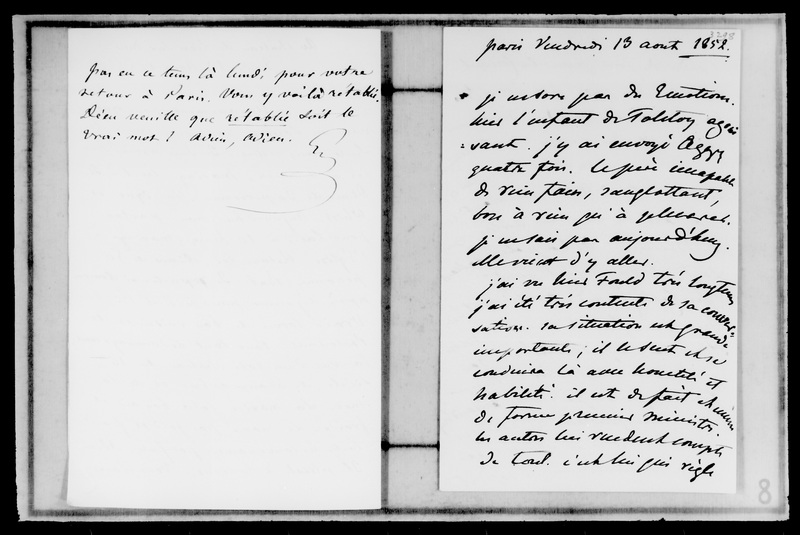 pas en ce tems là lundi pour votre
retour à Paris. Vous y voilà rétablie.
Dieu veuille que rétablie soit le
vrai mot ! adieu, adieu.
3288
paris Vendredi 13 aout 1852.
je ne sors pas des Emotions.
hier l'enfant de Tolstoy agoni
sant. j'y ai envoyé Oggy
quatre fois. le père incapable
de rien faire, sanglottant,
bon à rien qu'à pleurer.
je ne sais pas aujourd'huy.
elle vient d'y aller.
j'ai vu hier Fould très longtems
j'ai été très contente de sa conver=
sation. sa situation est grande
importante ; il le sent et se
conduira là avec honnêteté et
habileté. il est de fait et même
de forme premier ministre
les autres lui rendent compte
de tout. c'est lui qui règle
8